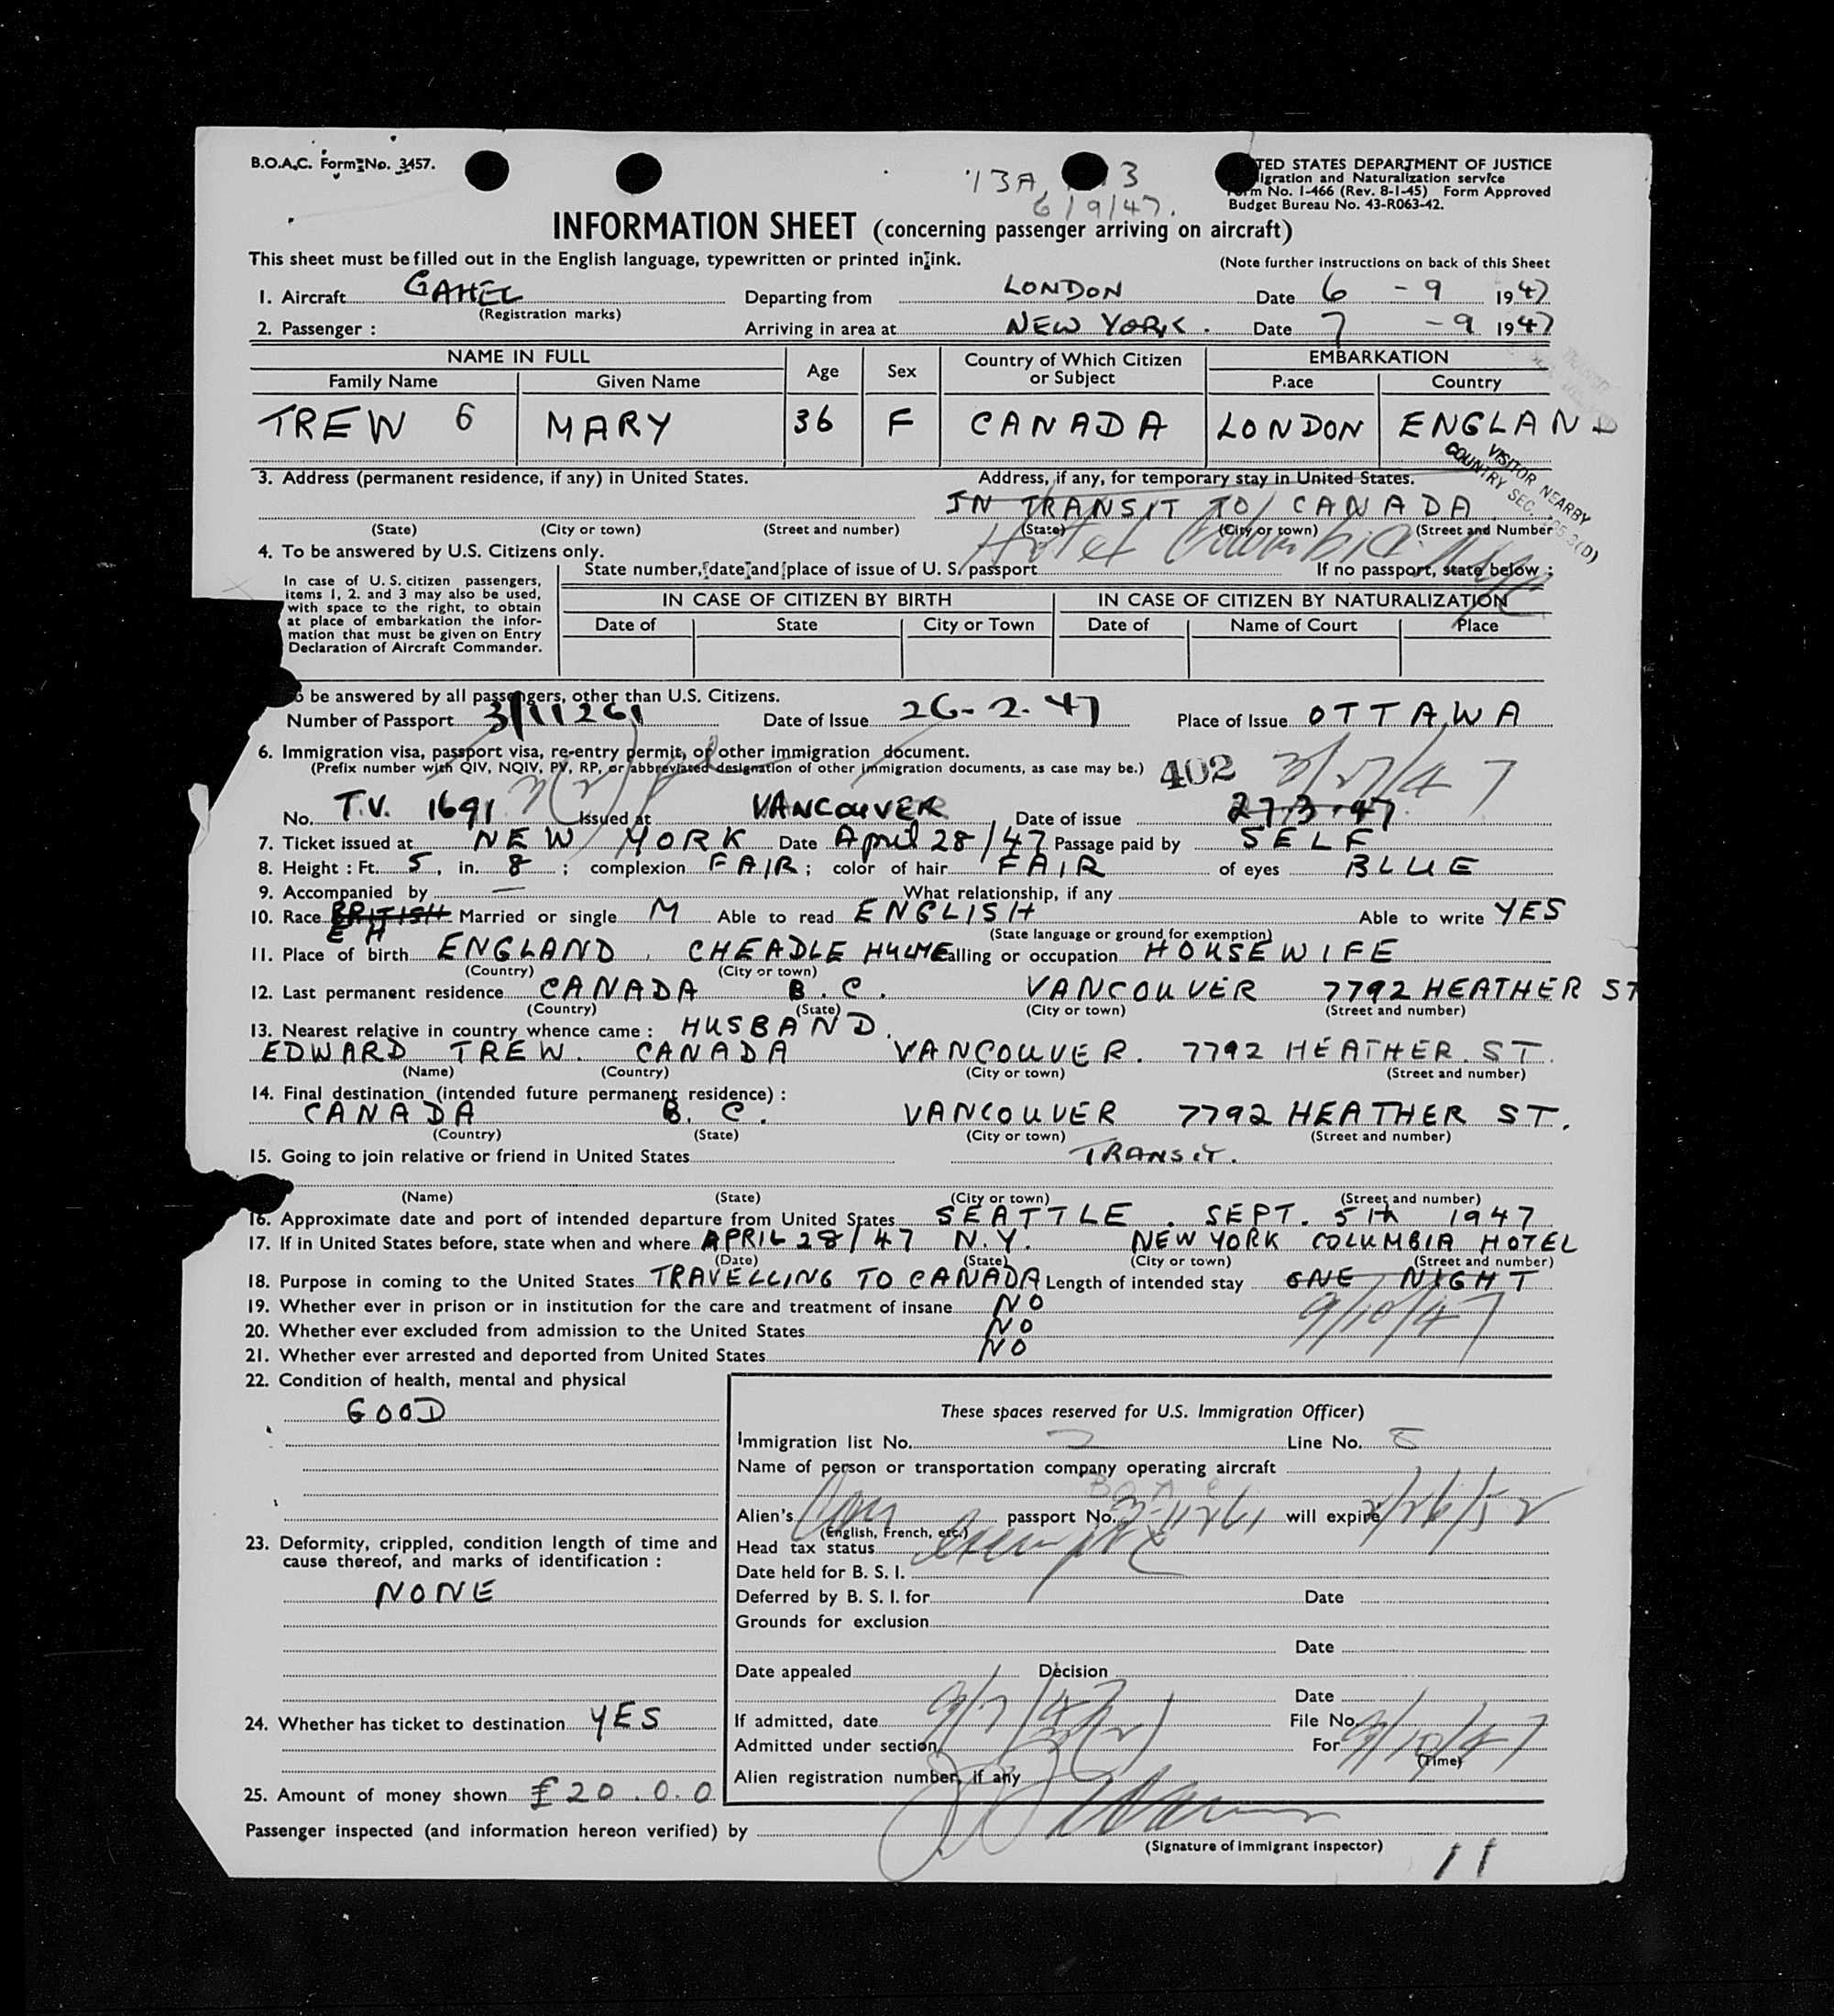 B.O.A.C. Form No. 3457.
13A, 3
6/9/47.
TED STATES DEPARTMENT OF JUSTICE
igration and Naturalization service
m No. I-466 (Rev. 8-1-45) Form Approved
Budget Bureau No. 43-R063-42.
INFORMATION SHEET (concerning passenger arriving on aircraft)
This sheet must be filled out in the English language, typewritten or printed in ink. (Note further instructions on back of this Sheet
1. Aircraft GAHEL Departing from LONDON Date 6 - 9 1947
(Registration marks)
2. Passenger : Arriving in area at NEW YORK. Date 7 - 9 1947
NAME IN FULL Age Sex Country of Which Citizen or Subject EMBARKATION
Family Name Given Name P.ace Country
TREW 6 MARY 36 F CANADA LONDON ENGLAND
VISITOR NEARBY
COUNTRY SEC. 3(D)
3. Address (permanent residence, if any) in United States. Address, if any, for temporary stay in United States.
IN TRANSIT TO CANADA
(State) (City or town) (Street and number) (State) (City or town) (Street and Number
Hotel Columbia NYC
4. To be answered by U.S. Citizens only.
State number, date and place of issue of U. S. passport If no passport, state below :
In case of U. S. citizen passengers,
items 1, 2. and 3 may also be used,
with space to the right, to obtain
at place of embarkation the infor-
mation that must be given on Entry
Declaration of Aircraft Commander.
IN CASE OF CITIZEN BY BIRTH IN CASE OF CITIZEN BY NATURALIZATION
Date of State City or Town Date of Name of Court Place
o be answered by all passengers, other than U.S. Citizens.
Number of Passport 3/11261 Date of Issue 26-2-47 Place of Issue OTTAWA
6. Immigration visa, passport visa, re-entry permit, or other immigration document.
(Prefix number with QIV, NQIV, PV, RP, or abbreviated designation of other immigration documents, as case may be.) 402 3/27/47
3(2)
No. T.V. 1691 Issued at VANCOUVER Date of issue 27.3.47
7. Ticket issued at NEW YORK Date April 28/47 Passage paid by SELF
8. Height : Ft. 5, in. 8 ; complexion FAIR ; color of hair FAIR of eyes BLUE
9. Accompanied by — What relationship, if any
10. Race BRITISH Married or single M Able to read ENGLISH Able to write YES
E H (State language or ground for exemption)
11. Place of birth ENGLAND, CHEADLE HULME alling or occupation HOUSEWIFE
(Country) (City or town)
12. Last permanent residence CANADA B.C. VANCOUVER 7792 HEATHER ST
(Country) (State) (City or town) (Street and number)
13. Nearest relative in country whence came : HUSBAND.
EDWARD TREW. CANADA VANCOUVER. 7792 HEATHER. ST.
(Name) (Country) (City or town) (Street and number)
14. Final destination (intended future permanent residence) :
CANADA B.C. VANCOUVER 7792 HEATHER ST.
(Country) (State) (City or town) (Street and number)
15. Going to join relative or friend in United States TRANSIT.
(Name) (State) (City or town) (Street and number)
16. Approximate date and port of intended departure from United States SEATTLE. SEPT. 5th 1947
17. If in United States before, state when and where APRIL 28/47 N.Y. NEW YORK COLUMBIA HOTEL
(Date) (State) (City or town) (Street and number)
18. Purpose in coming to the United States TRAVELLING TO CANADA Length of intended stay ONE NIGHT
9/10/47
19. Whether ever in prison or in institution for the care and treatment of insane NO
20. Whether ever excluded from admission to the United States NO
21. Whether ever arrested and deported from United States NO
22. Condition of health, mental and physical
GOOD
23. Deformity, crippled, condition length of time and
cause thereof, and marks of identification :
NONE
24. Whether has ticket to destination YES
25. Amount of money shown £20.0.0
These spaces reserved for U.S. Immigration Officer)
Immigration list No. 2 Line No. 8
Name of person or transportation company operating aircraft
BOAC
Alien's Can passport No. 3-11261 will expire 2/26/52
(English, French, etc.)
Head tax status exempt
Date held for B. S. I.
Deferred by B. S. I. for Date
Grounds for exclusion
Date
Date appealed Decision
Date
If admitted, date 9/7/47 File No.
Admitted under section 3(2) For 9/10/47
(Time)
Alien registration number, if any
Passenger inspected (and information hereon verified) by
(Signature of immigrant inspector)
11